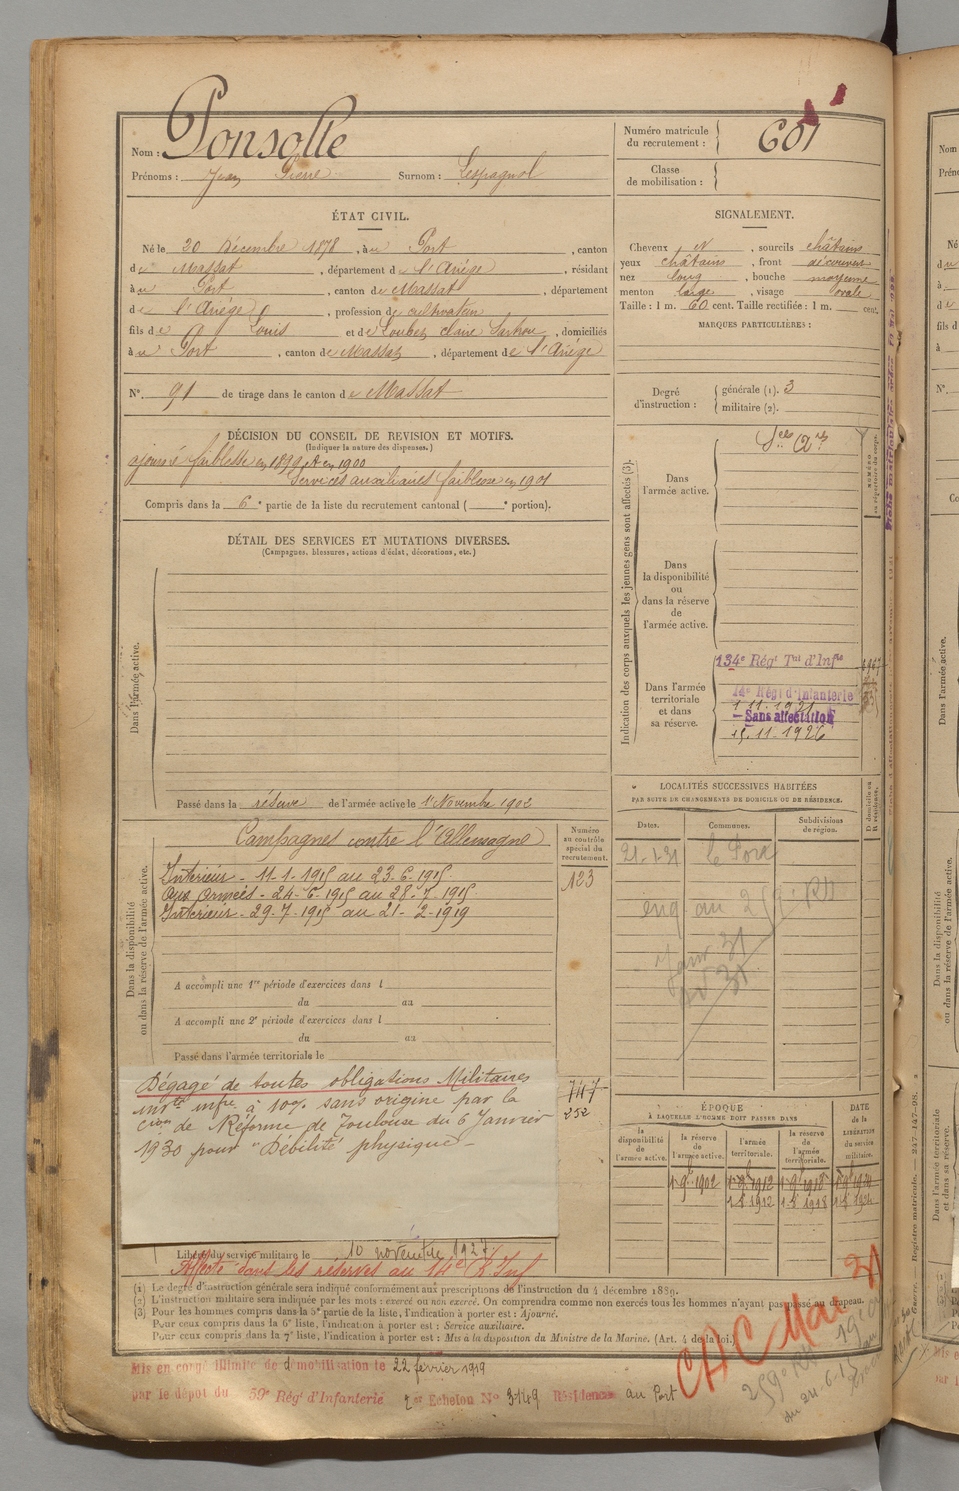 Nom : Ponsolle
Prénoms : Jean Pierre Surnom : Lespagnol
Numéro matricule du recrutement : 601
Classe de mobilisation :
ÉTAT CIVIL.
Né le 20 Décembre 1878, à u Port, canton
de Massat, département de l'Ariège, résidant
à u Port, canton de Massat, département
de l'Ariège, profession de cultivateur
fils de Louis et de Loubet Claire, domiciliés
à u Port, canton de Massat, département de l'Ariège
N°. 91 de tirage dans le canton de Massat
SIGNALEMENT.
Cheveux N, sourcils châtains
yeux châtains, front découvert
nez long, bouche moyenne
menton large, visage ovale
Taille : 1 m. 60 cent. Taille rectifiée : 1 m. cent.
MARQUES PARTICULIÈRES :
Degré d'instruction : générale (1). 3
militaire (2).
DÉCISION DU CONSEIL DE REVISION ET MOTIFS.
(Indiquer la nature des dispenses.)
ajourné faiblesse en 1899, et en 1900
Services auxiliaires faiblesse en 1901
Compris dans la 6e partie de la liste du recrutement cantonal ( e portion).
DÉTAIL DES SERVICES ET MUTATIONS DIVERSES.
(Campagnes, blessures, actions d'éclat, décorations, etc.)
Dans l'armée active.
Passé dans la réserve de l'armée active le 1er Novembre 1902
Indication des corps auxquels les jeunes gens sont affectés (3).
Dans l'armée active.
Dans la disponibilité ou dans la réserve de l'armée active.
Dans l'armée territoriale et dans sa réserve.
134e Régt Tal d'Infie
14e Régt d'Infanterie
1-11-1921
Sans affectation
15.11.1926
Dans la disponibilité ou dans la réserve de l'armée active.
Campagnes contre l'Allemagne
Intérieur - 11-1-1915 au 23-6-1915
Aux Armées - 24-6-1915 au 28-7-1915
Intérieur - 29-7-1915 au 21-2-1919
Numéro au contrôle spécial du recrutement.
123
A accompli une 1re période d'exercices dans l
du au
A accompli une 2e période d'exercices dans l
du au
Passé dans l'armée territoriale le
Dégagé de toutes obligations Militaires
invte infre à 10% sans origine par la
Cion de Réforme de Toulouse du 6 Janvier
1930 pour "Débilité physique" -
747
252
Libéré du service militaire le 10 novembre 1927
Affecté dans les réserves au 14e R Inf
LOCALITÉS SUCCESSIVES HABITÉES
PAR SUITE DE CHANGEMENTS DE DOMICILE OU DE RÉSIDENCE.
Dates. Communes. Subdivisions de région. D domicile ou R résidence.
21-1-31 Le Port
ÉPOQUE
À LAQUELLE L'HOMME DOIT PASSER DANS
DATE de la LIBÉRATION du service militaire.
la disponibilité de l'armée active. la réserve de l'armée active. l'armée territoriale. la réserve de l'armée territoriale.
1-9bre 1902 1-9bre 1912 1-9bre 1918
1-8 1912 1-8 1918
(1) Le degré d'instruction générale sera indiqué conformément aux prescriptions de l'instruction du 4 décembre 1889.
(2) L'instruction militaire sera indiquée par les mots : exercé ou non exercé. On comprendra comme non exercés tous les hommes n'ayant pas passé au drapeau.
(3) Pour les hommes compris dans la 5e partie de la liste, l'indication à porter est : Ajourné.
Pour ceux compris dans la 6e liste, l'indication à porter est : Service auxiliaire.
Pour ceux compris dans la 7e liste, l'indication à porter est : Mis à la disposition du Ministre de la Marine. (Art. 4 de la loi.)
Mis en congé illimité de démobilisation le 22 février 1919
par le dépôt du 59e Régt d'Infanterie 2e Echelon N° 3149 Résidence au Port